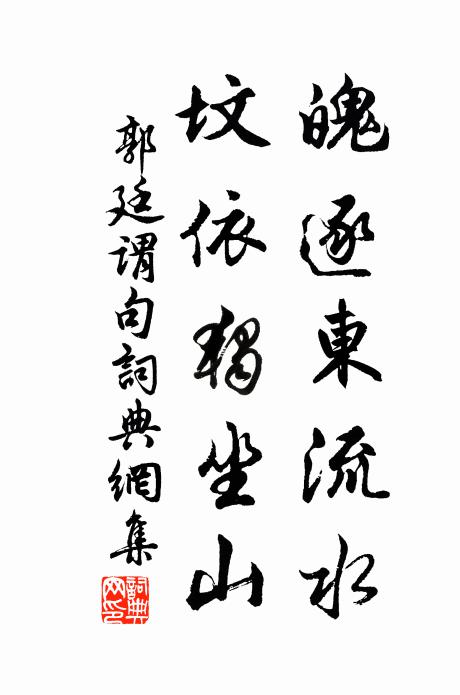 魄逐東流水
墳依獨坐山
郭廷謂句詞典網集